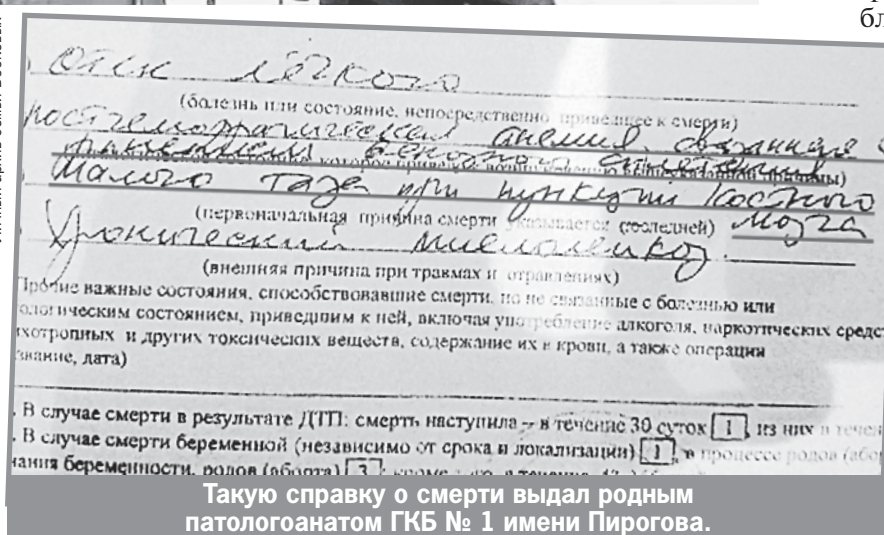 бл
Отек лёгкого
(болезнь или состояние, непосредственно приведшее к смерти)
постгеморрагическая анемия, связанная с
ранением венозного сплетения
Малого таза при пункции костного
(первоначальная причина смерти указывается последней) мозга
Хронический миелолейкоз.
(внешняя причина при травмах и отравлениях)
Прочие важные состояния, способствовавшие смерти, но не связанные с болезнью или
ологическим состоянием, приведшим к ней, включая употребление алкоголя, наркотических средст
ихотропных и других токсических веществ, содержание их в крови, а также операции
звание, дата)
. В случае смерти в результате ДТП: смерть наступила - в течение 30 суток 1, из них в течен
. В случае смерти беременной (независимо от срока и локализации) 1, в процессе родов (або
чания беременности, родов (аборта) 3; кроме
Такую справку о смерти выдал родным
патологоанатом ГКБ № 1 имени Пирогова.